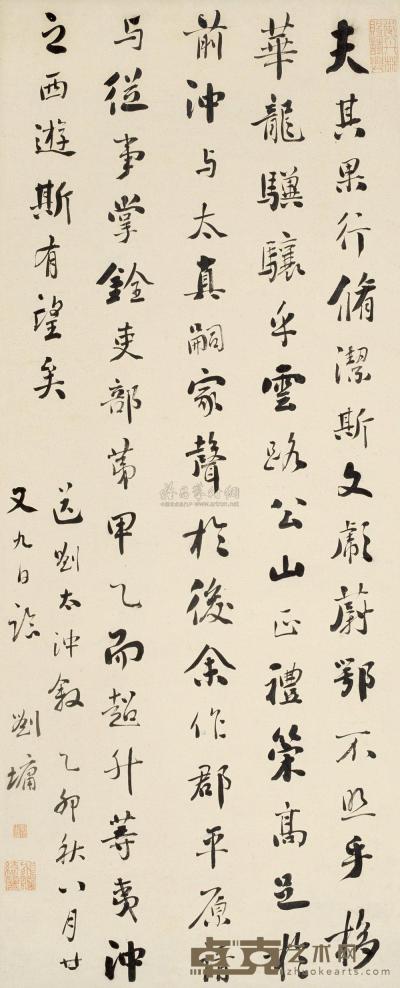 夫其果行脩潔斯文彪蔚鄂不照乎栘
華龍驥驤乎雲路公山正禮策高足於
前沖与太真嗣家聲於後余作郡平原請
与從事掌銓吏部第甲乙而超升等夷沖
之西遊斯有望矣
送劉太沖敘乙卯秋八月廿
又九日臨劉墉